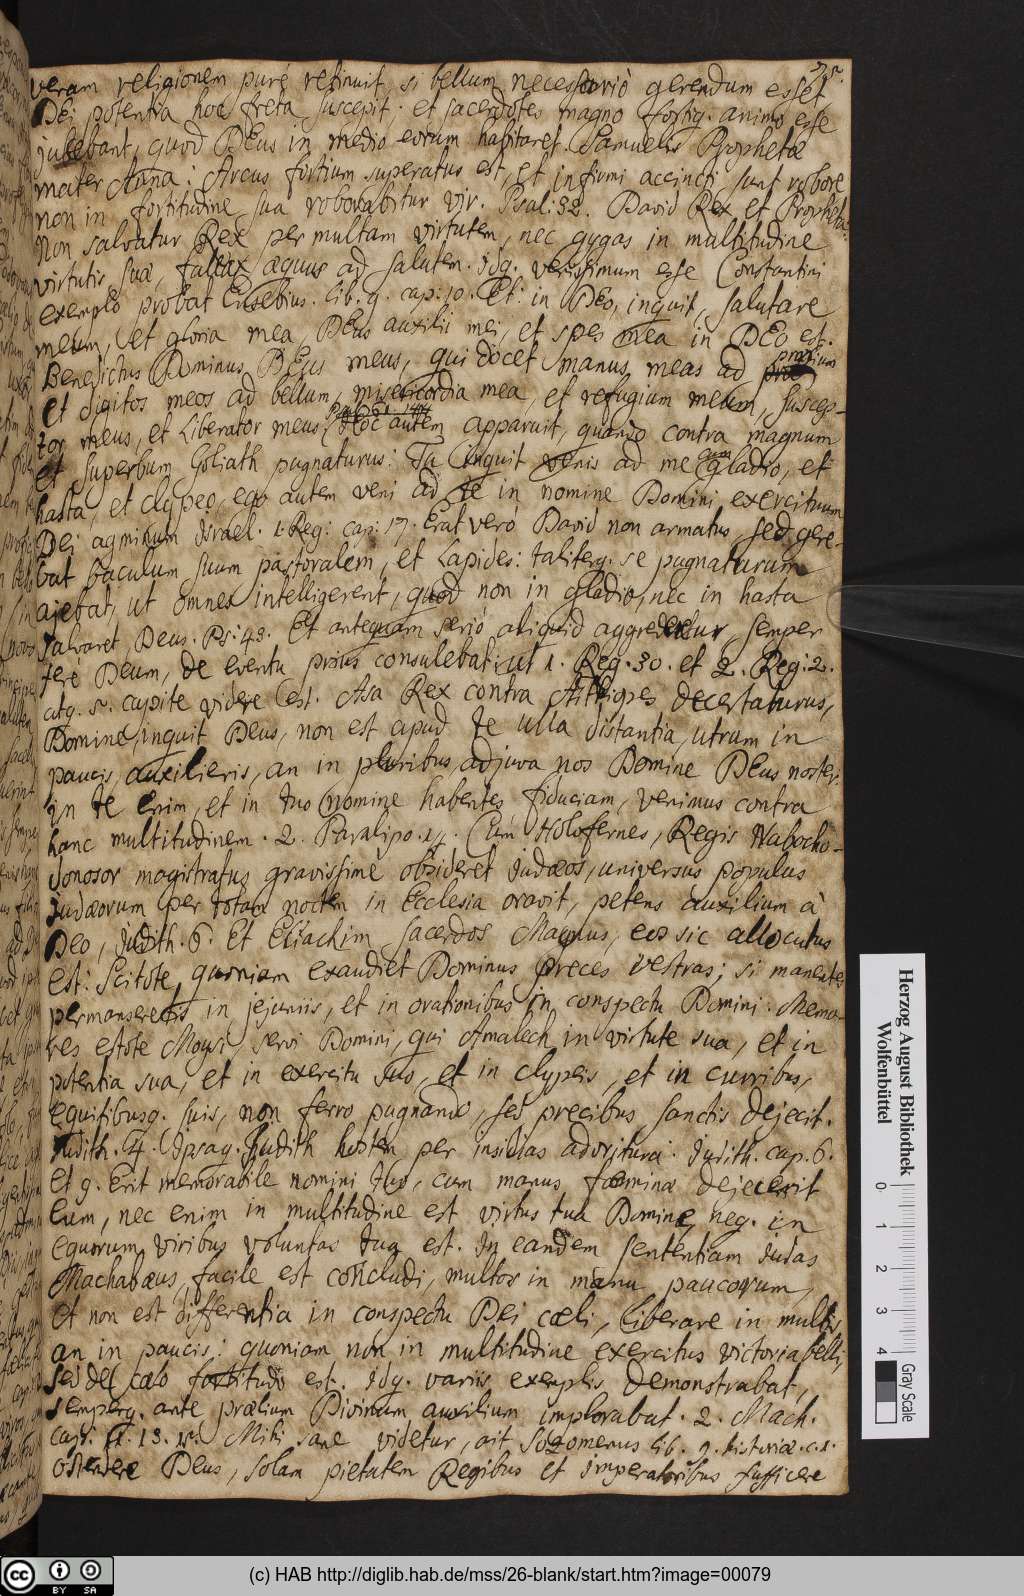 75.
veram religionem purè retinuit, si bellum necessariò gerendum esset,
DEi potentia hoc freta suscepit, et sacerdotes magno fortiq. animo esse
jubebant, quod DEus in medio eorum habitaret. Samuelis Prophetæ
mater Anna: Arcus fortium superatus est, et infirmi accincti sunt robore
non in fortitudine sua roborabitur vir. Psal: 32. David Rex et Propheta:
Non salvatur Rex per multam virtutem, nec gygas in multitudine
virtutis suæ, fallax æquus ad salutem. Idq. verissimum esse Constantini
exemplo probat Eusebius. lib. 9. cap: 10. Et: in DEo, inquit, salutare
meum, et gloria mea, DEus auxilii mei, et spes mea in DEo est.
Benedictus Dominus DEus meus, qui docet manus meas ad prælium
et digitos meos ad bellum, misericordia mea, et refugium meum, suscep-
tor meus, et Liberator meus. Hoc autem apparuit, quando contra magnum
et superbum Goliath pugnaturus: Tu inquit venis ad me cum gladio, et
hasta, et clypeo, ego autem veni ad te in nomine Domini exercituum
Dei agminum Israel. 1. Reg: cap: 17. Erat verò David non armatus, sed gere-
bat baculum suum pastoralem, et Lapides: taliterq. se pugnaturum
ajebat, ut omnes intelligerent, quod non in gladio, nec in hasta
salvaret Deus. Ps: 43. Et antequam seriò aliquid aggrederetur, semper
ferè Deum, de eventu prius consulebat: ut 1. Reg. 30. et 2. Reg: 2.
atq. 5. capite videre est. Asa Rex contra Æthiopes decertaturus,
Domine, inquit Deus, non est apud te ulla distantia, utrum in
paucis auxilieris, an in pluribus, adjuva nos Domine DEus noster:
in te enim, et in tuo nomine habentes fiduciam, venimus contra
hanc multitudinem. 2. Paralipo. 14. Cum Holofernes, Regis Nabocho-
donosor magistratus gravissime obsideret Judæos, universus populus
Judæorum per totam noctem in Ecclesia oravit, petens auxilium à
DEo, Judith. 6. Et Eliachim sacerdos Magnus, eos sic allocutus
est: Scitote, quoniam exaudiet Dominus preces vestras; si manentes
permanseretis in jejuniis, et in orationibus in conspectu Domini. Memo-
res estote Moysi, servi Domini, qui Amalech in virtute sua, et in
potentia sua, et in exercitu suo, et in clypeis, et in curribus,
equitibusq. suis, non ferro pugnando, sed precibus sanctis dejecit.
Judith. 4. Ipsaq. Judith hostem per insidias adoritura. Judith. cap. 6.
et 9. Erit memorabile nomini tuo, cum manus fæminæ dejecerit
Eum, nec enim in multitudine est virtus tua Domine, neq. in
equorum viribus voluntas tua est. In eandem sententiam Judas
Machabæus, facile est concludi, multos in manu paucorum,
et non est differentia in conspectu Dei cæli, Liberare in multis
an in paucis: quoniam non in multitudine exercitus victoria belli,
sed de cælo fortitudo est. Idq. variis exemplis demonstrabat,
semperq. ante prælium Divinum auxilium implorabat. 2. Mach.
cap. 11. 13. 15. Mihi sane videtur, ait Sozomenus lib. 9. historiæ. c. 1.
ostendere Deus, solam pietatem Regibus et Imperatoribus sufficere
Herzog August Bibliothek
Wolfenbüttel
0 1 2 3 4
Gray Scale
cc BY SA
(c) HAB http://diglib.hab.de/mss/26-blank/start.htm?image=00079